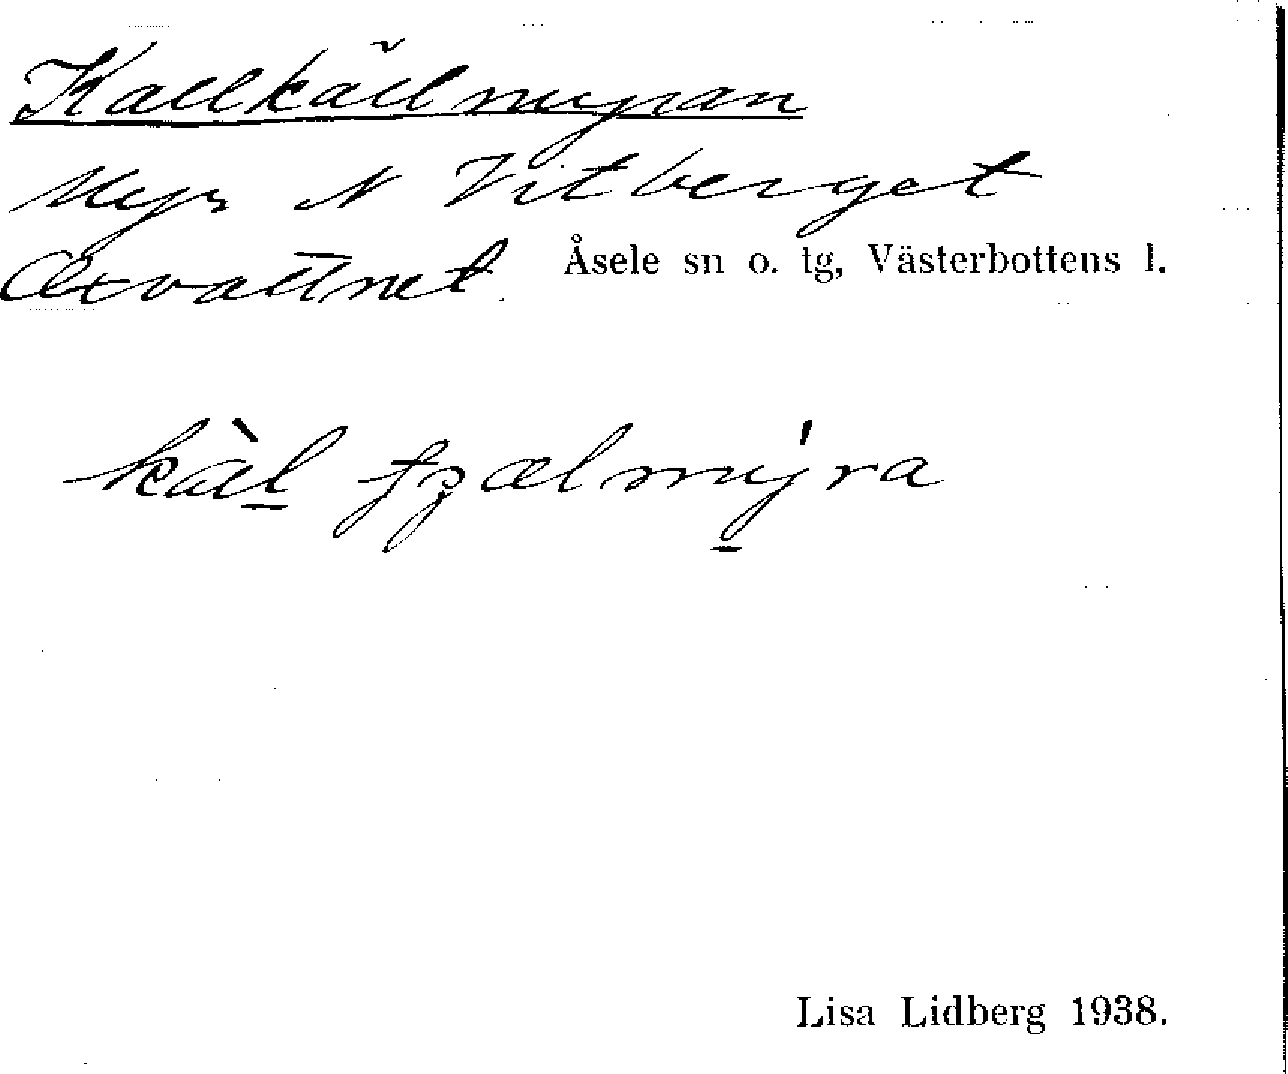 Kallkällmyran
Myr N Vitberget
Oxvattnet Åsele sn o. tg, Västerbottens l.
kàl myra
Lisa Lidberg 1938.